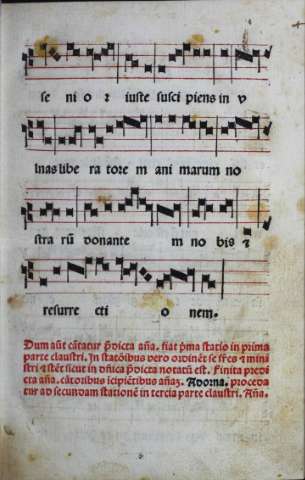 se ni o ꝛ iuste susci piens in v
lnas libe ra tore m ani marum no
stra rū donante m no bis ⁊
resurre cti o nem.
Dum aūt cātatur p̄dicta aña. fiat p̄ma statio in prima
parte claustri. In statōibus vero ordinēt se fr̄es ⁊ mini
stri ⁊ stēt sicut in dñica p̄dicta notatū est. Finita predi
cta aña. cātoribus icipiētibus añaz. Adorna. proceda
tur ad secundam stationē in tercia parte claustri. Aña.